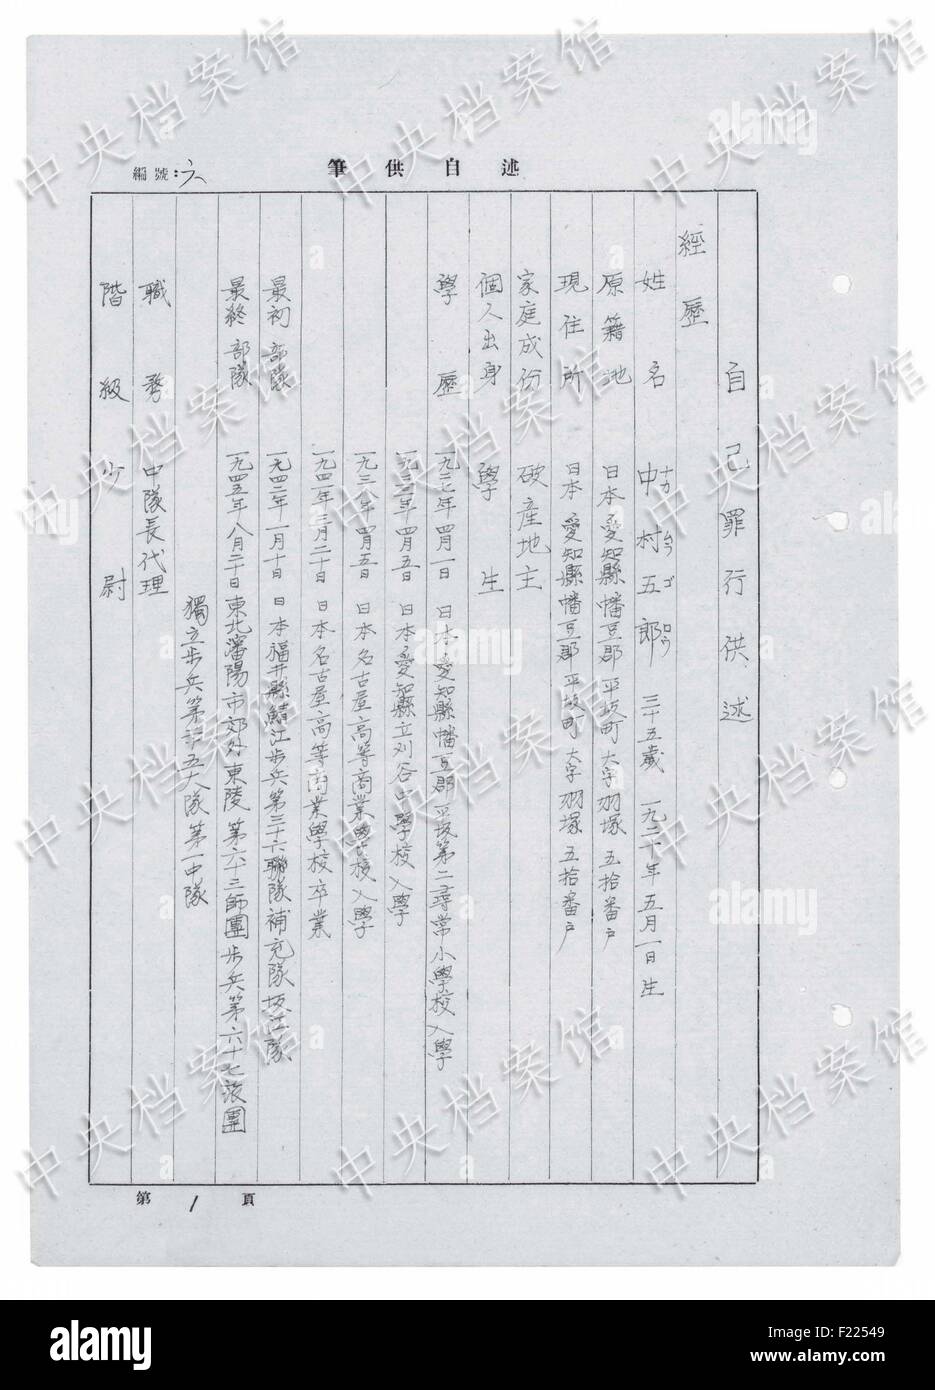 筆供自述
編號：六
自己罪行供述
經歷
姓名 中村五郎 三十五歲 一九二〇年五月一日生
ナカ ムラ ゴ ロウ
原籍地 日本愛知縣幡豆郡平坂町大字羽塚五拾番戶
現住所 日本愛知縣幡豆郡平坂町大字羽塚五拾番戶
家庭成份 破產地主
個人出身 學生
學歷 一九二七年四月一日 日本愛知縣幡豆郡平坂第二尋常小學校入學
一九三三年四月五日 日本愛知縣立刈谷中學校入學
一九三八年四月五日 日本名古屋高等商業學校入學
一九四一年三月二十日 日本名古屋高等商業學校卒業
最初部隊 一九四二年一月十日 日本福井縣鯖江步兵第三十六聯隊補充隊 隊
最終部隊 一九四五年八月二十日 東北瀋陽市郊外東陵第六十三師團步兵第六十七旅團
獨立步兵第 五大隊第一中隊
職務 中隊長代理
階級 少尉
第 1 頁
中央档案馆
alamy
Image ID: F22549
www.alamy.com